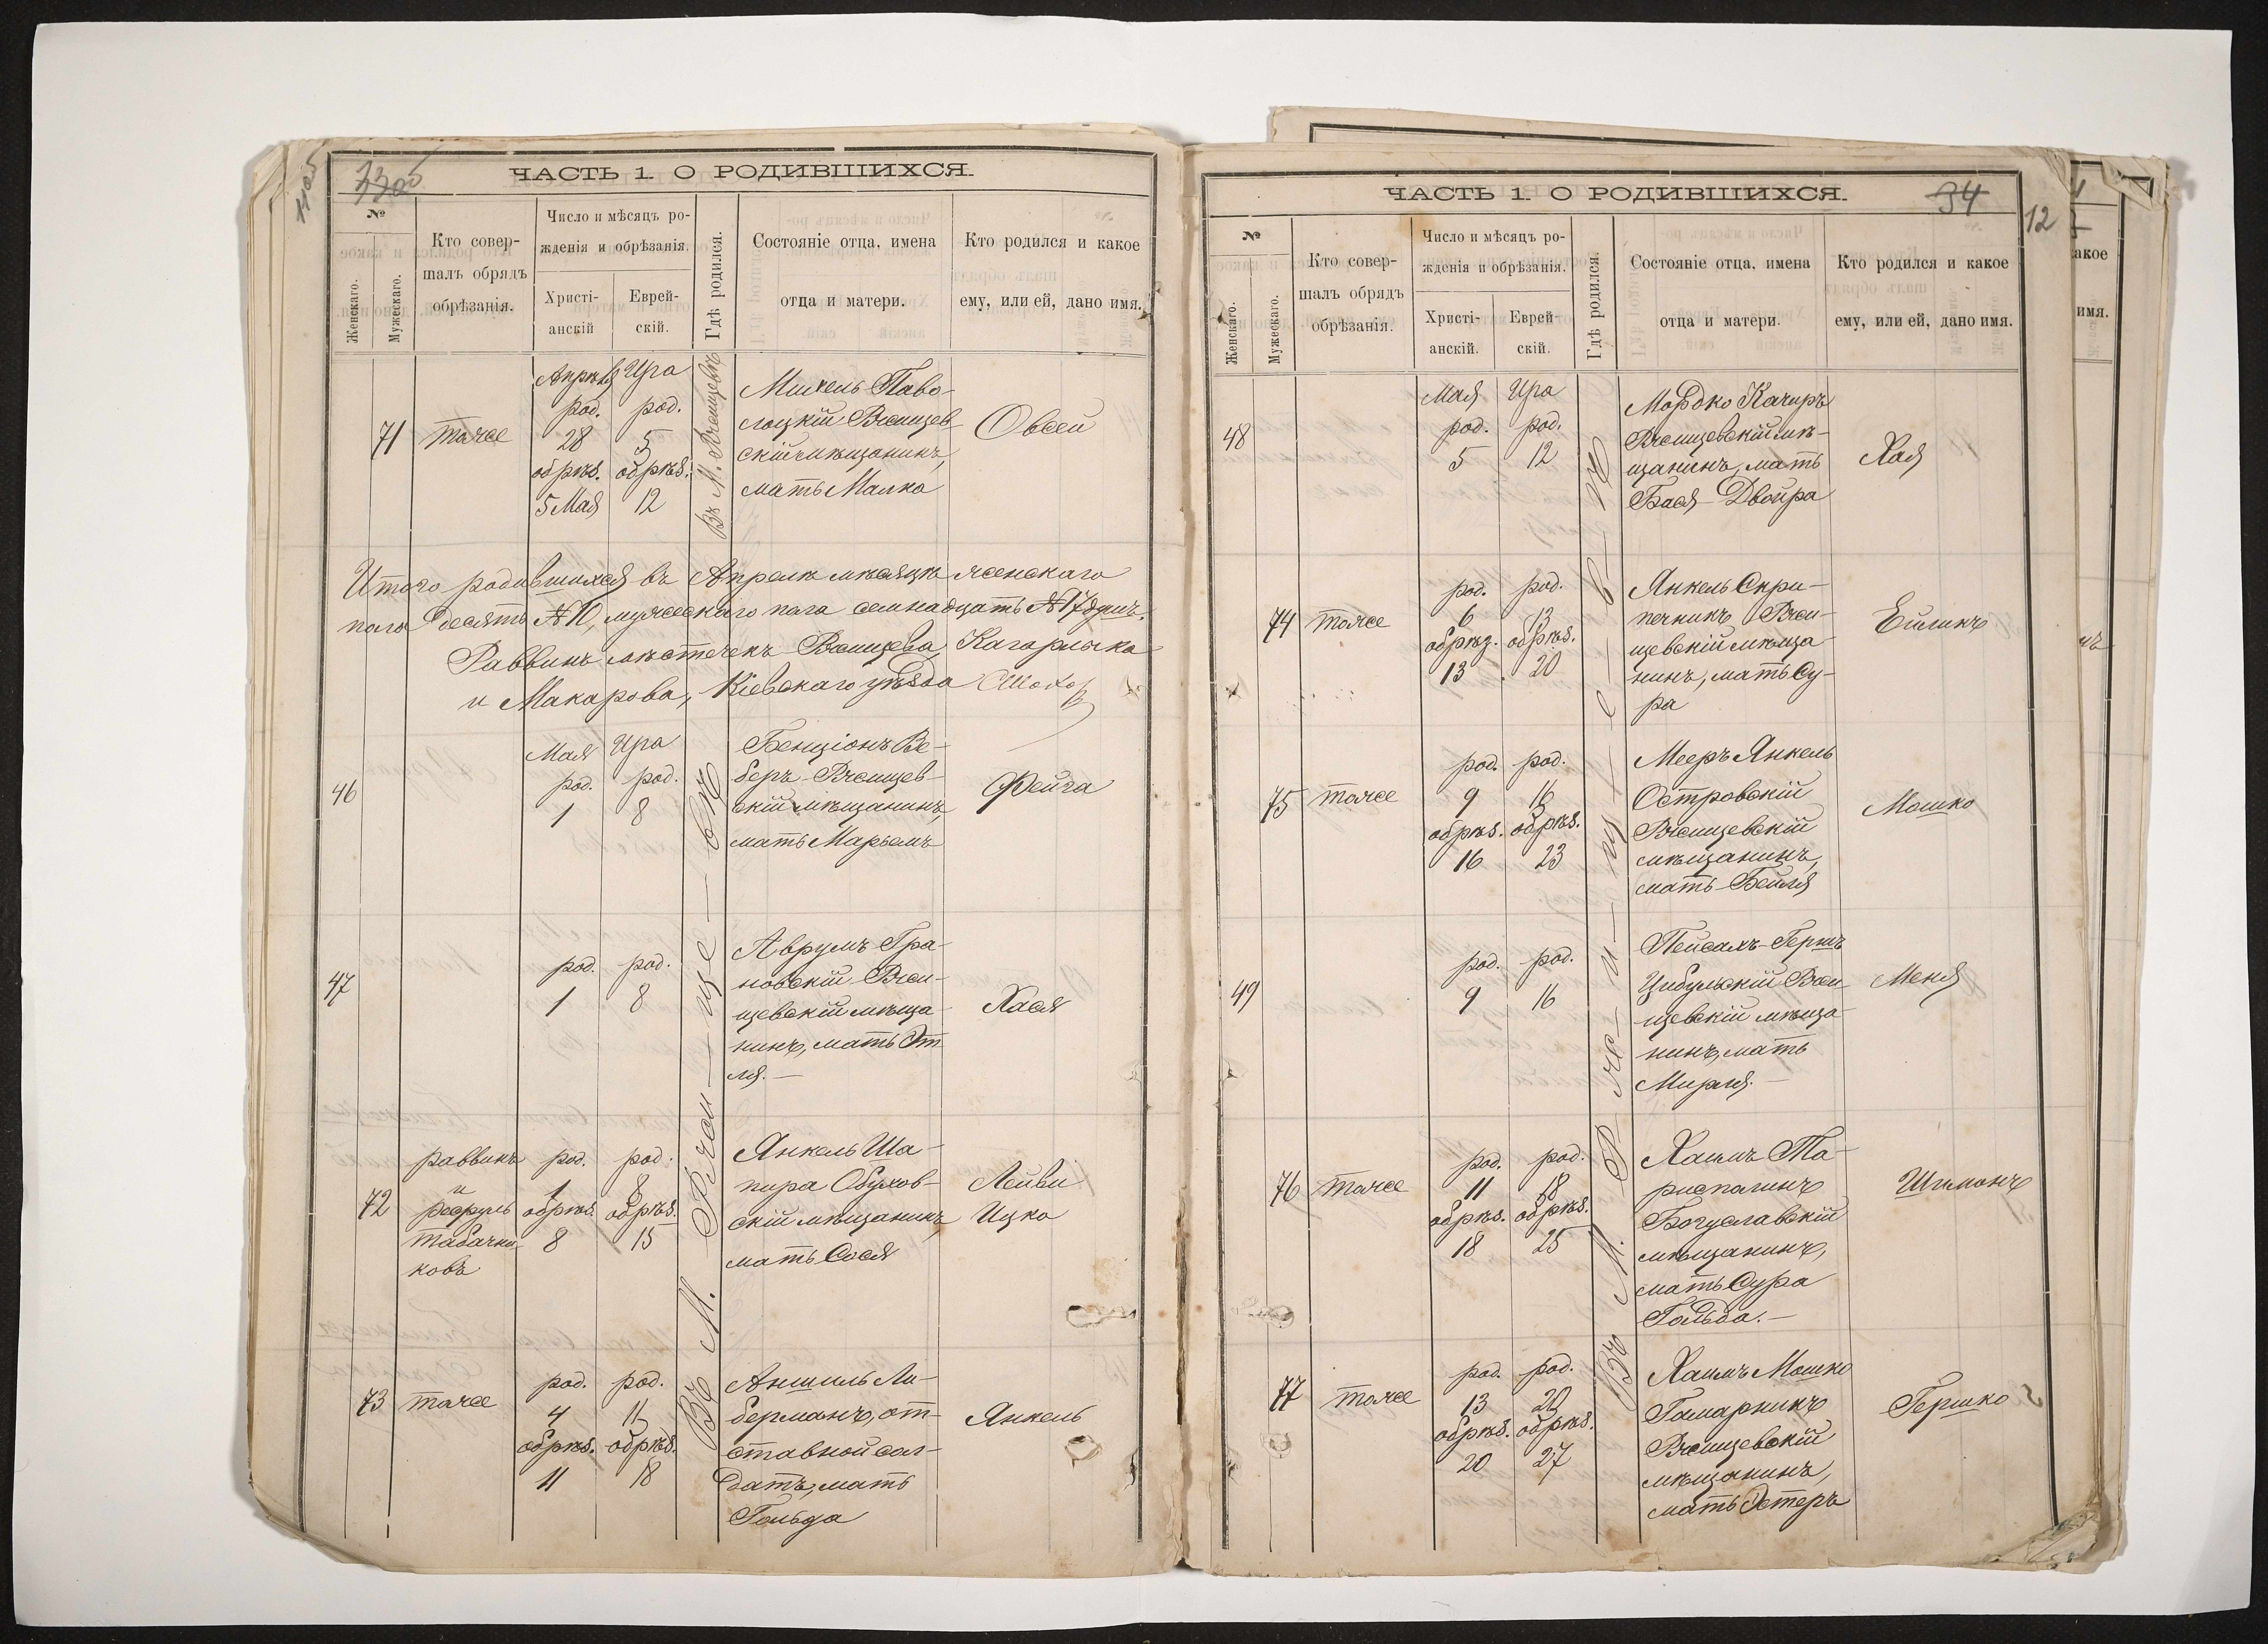 1105
ЧАСТЬ 1. О РОДИВШИХСЯ.
№
Женскаго.
Мужескаго.
Кто совер-
шалъ обрядъ
обрѣзанія.
Число и мѣсяцъ ро-
жденія и обрѣзанія.
Христі-
анскій
Еврей-
скій.
Гдѣ родился.
Состояніе отца, имена
отца и матери.
Кто родился и какое
ему, или ей, дано имя.
71
тоже
Апрѣля
род.
28
обрѣз.
5 Мая
Ира
род.
5
обрѣз.
12
Въ М. Ржищевѣ
Михель Паво-
лоцкій Ржищев
скій мѣщанинъ,
мать Малка
Овсей
Итого родившихся въ Апрелѣ мѣсяцѣ женскаго
пола десять № 10, мужескаго пола семнадцать № 17 душъ.
Раввинъ мѣстечекъ Ржищева, Кагарлыка
и Макарова, Кіевскаго уѣзда
Въ М. Ржи-ще-вѣ
46
Мая
род.
1
Ира
род.
8
Бенціонъ Ве-
беръ Ржищев-
скій мѣщанинъ,
мать Марьемъ
Фейга
47
род.
1
род.
8
Аврумъ Гра-
новскій Ржи-
щевскій мѣща-
нинъ, мать Эт
ля.—
Хася
72
раввинъ
и
Табачни
ковъ
род.
1
обрѣз.
8
род.
8
обрѣз.
15
Янкель Ша-
пира Обухов-
скій мѣщанинъ,
мать Сося
Лейви
Ицко
73
тоже
род.
4
обрѣз.
11
род.
11
обрѣз.
18
Аншиль Ли-
берманъ, от-
ставной сол-
датъ, мать
Гольда
Янкель
ЧАСТЬ 1. О РОДИВШИХСЯ.
34
12
№
Женскаго.
Мужескаго.
Кто совер-
шалъ обрядъ
обрѣзанія.
Число и мѣсяцъ ро-
жденія и обрѣзанія.
Христі-
анскій.
Еврей-
скій.
Гдѣ родился.
Состояніе отца, имена
отца и матери.
Кто родился и какое
ему, или ей, дано имя.
акое
имя.
Въ М. Р-жи-щ-е-в-ѣ
48
Мая
род.
5
Ира
род.
12
Мордко Качиръ
Ржищевскій мѣ-
щанинъ, мать
Бася-Двойра
Хая
74
тоже
род.
6
обрѣз.
13
род.
13
обрѣз.
20
Янкель Скри-
печникъ Ржи-
щевскій мѣща-
нинъ, мать Су-
ра
Ейликъ
75
тоже
род.
9
обрѣз.
16
род.
16
обрѣз.
23
Мееръ Янкель
Островскій
Ржищевскій
мѣщанинъ,
мать Бейля
Мошко
49
род.
9
род.
16
Пейсахъ-Гершъ
Цибульскій Ржи-
щевскій мѣща-
нинъ, мать
Мирля.—
Меня
76
тоже
род.
11
обрѣз.
18
род.
18
обрѣз.
25
Хаимъ Та-
Богуславскій
мѣщанинъ,
мать Сура
Гольда.—
Шимонъ
77
тоже
род.
13
обрѣз.
20
род.
20
обрѣз.
27
Хаимъ Мошко
Гамарникъ
Ржищевскій
мѣщанинъ,
мать Эстеръ
Гершко